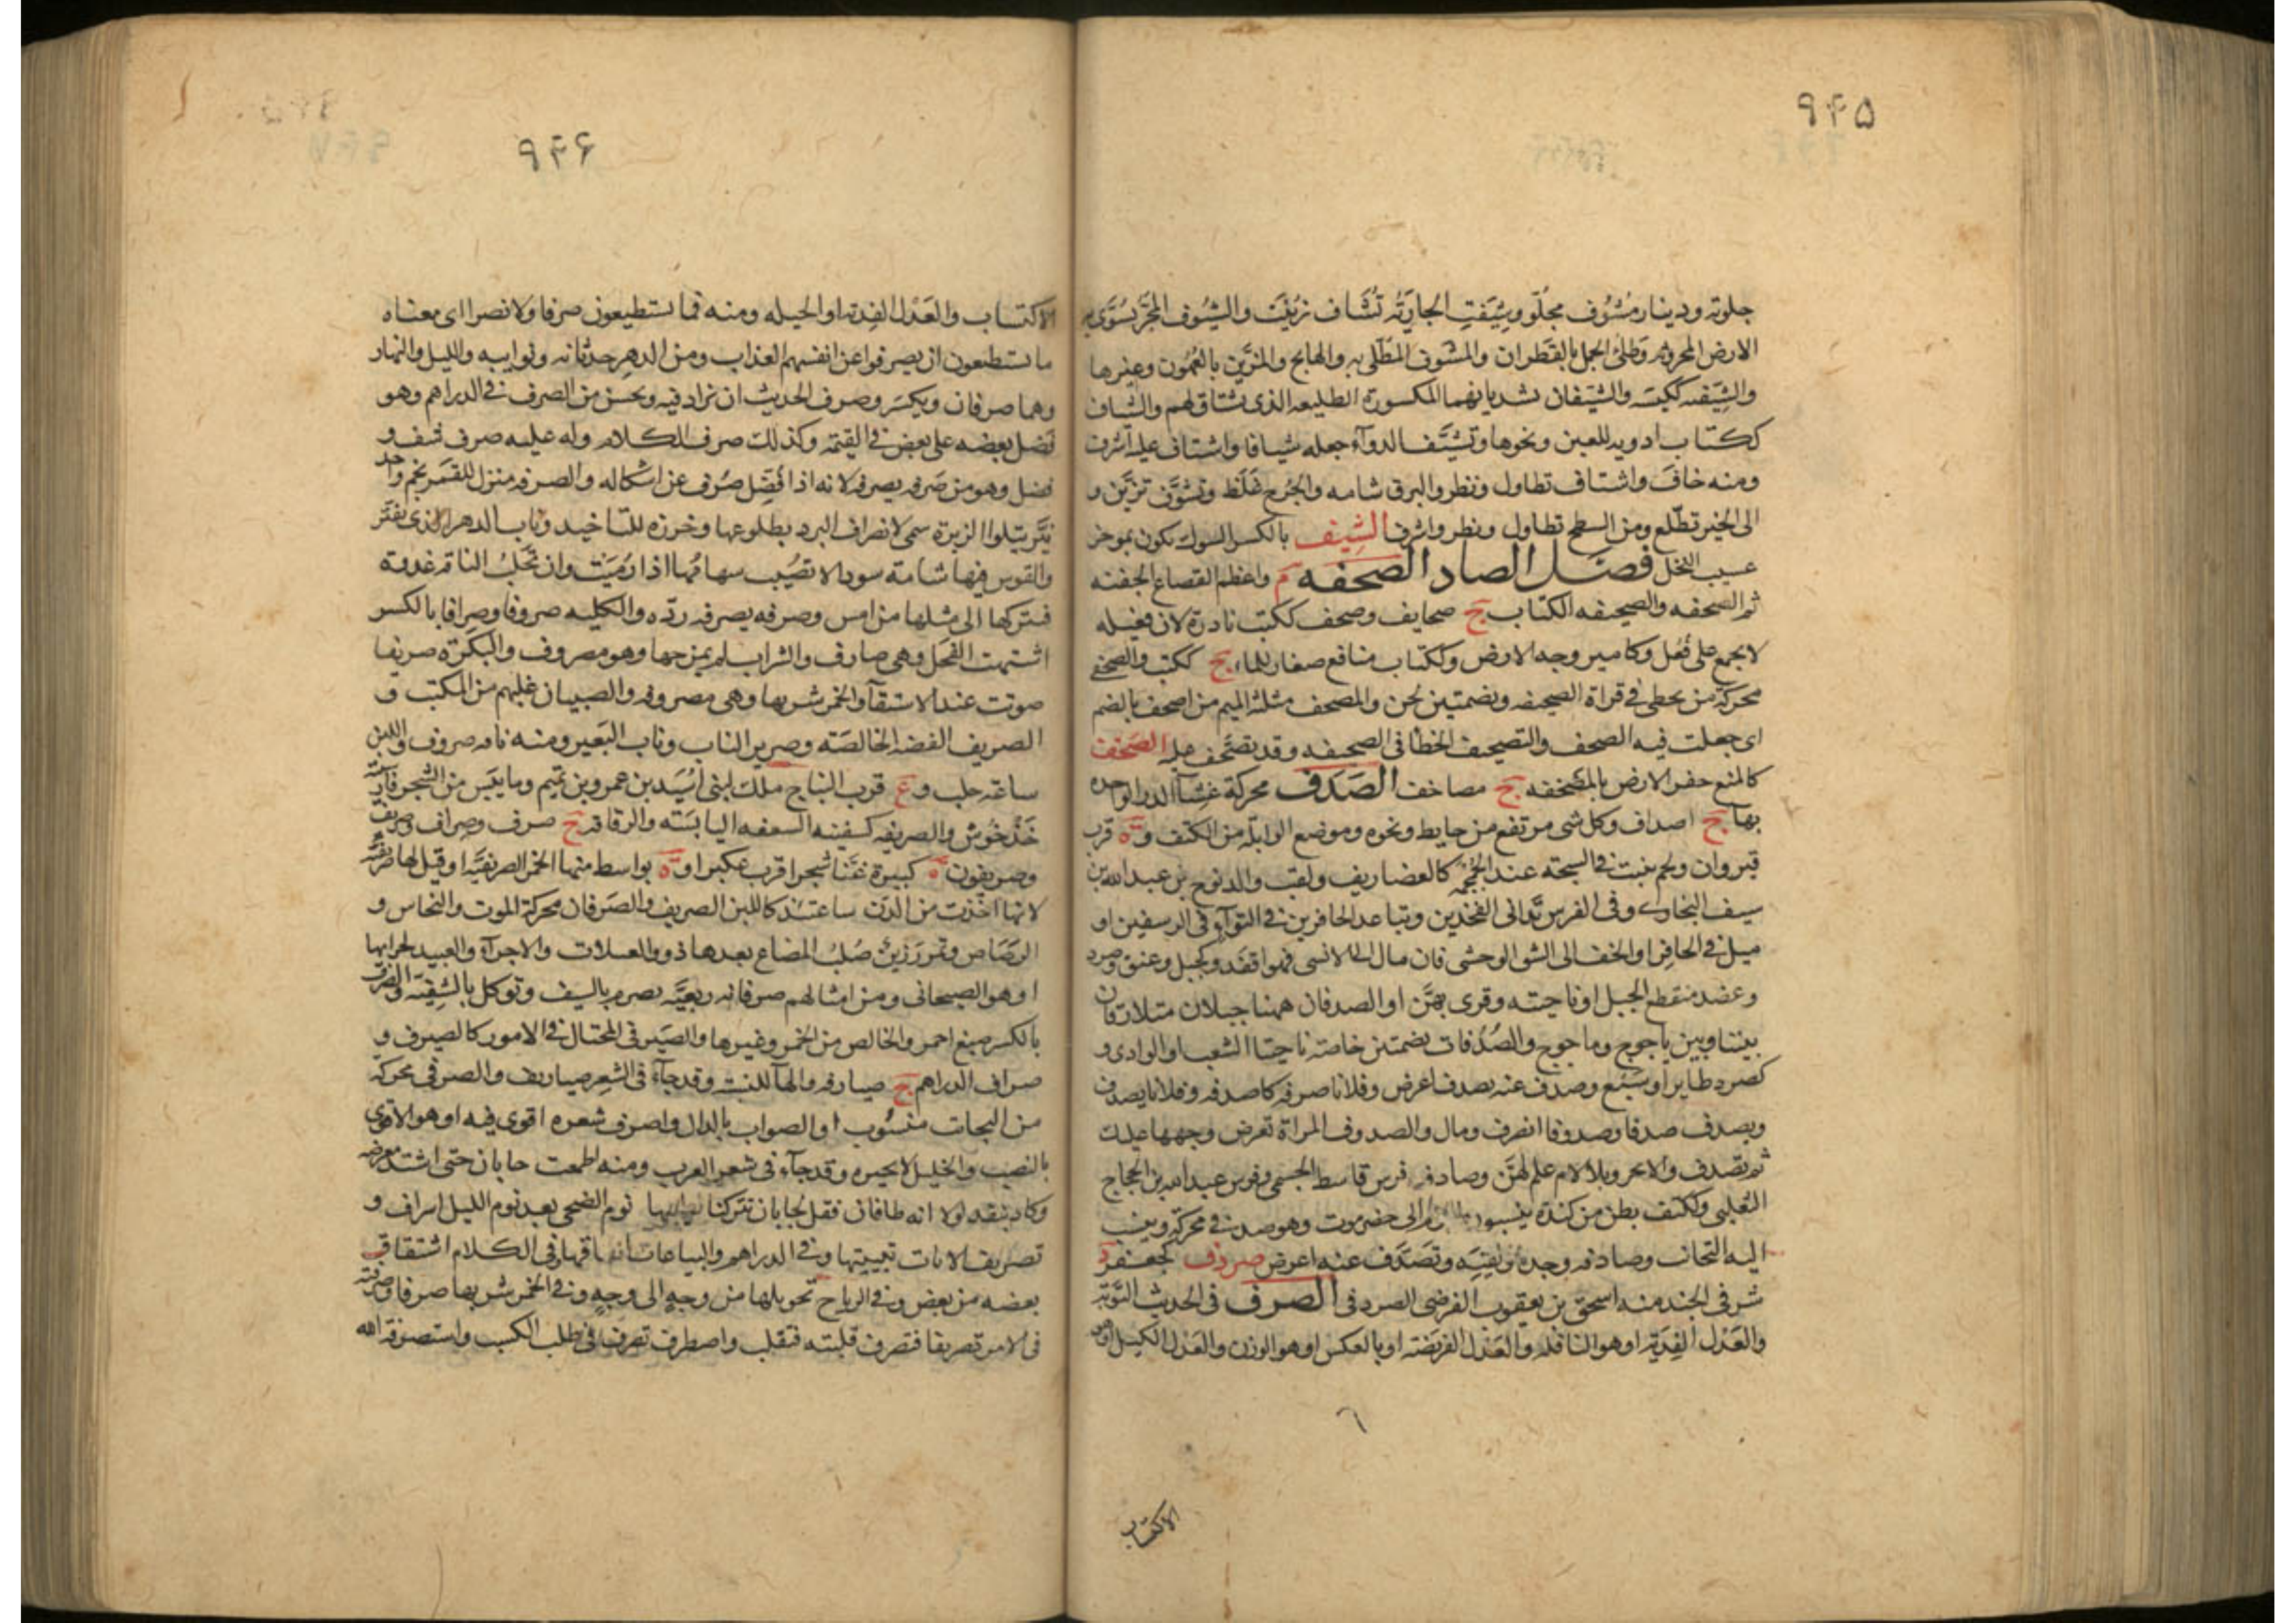 ۹۴۵
جلوته ودينار مشُوف مجلّو وشِيَفتِ الجاريَتُه تُشَاف زيّنت والشُوف المجَّر يُسَوَّى به
الارض المحروثه وطلىُ الجمل بالقَطِران والمشوف المطّلى به والهايج والمزيَّن بالعُهُون وغيرها
والشِّيَفه ككيّسه والشيّفان بشديايهما المكسورة الطليعه الذى يشتاق لهم والشاف
ككتاب ادويه للعين ونحوها وتشيّف الدوآء جعله شيافا واشتاف عليه اشرف
ومنه خافَ واشتاف تطاول ونظر والبرق شامه والجُرح غَلظ وتشوّف تزيَّن و
الى الخير تطلّع ومن السطح تطاول ونظر واشرف الشِيف بالكسر الشوك يكون بموخر
عسيب النخل فصل الصاد الصحفه م واعظم القصاع الجفنه
ثم الصحفه والصحيفه الكتاب ج صحايف وصحف ككتب نادرة لان فعيله
لا يجمع على فُعُل وكامير وجه الارض وككتاب مناقع صغار للماء ج ككتب والصحفى
محركة من يخطى فى قراة الصحيفه وبضمتين لحن والمصحف مثلثة الميم من اصحف بالضم
اى جعلت فيه الصحف والتصحيف الخطأ فى الصحيفه وقد تصَحّف عليه الصخف
كالمنع حفر الارض بالمصخفه ج مصاخف الصَدَف محركة غِشآ الدر الواحده
بهآ ج اصداف وكل شى مرتفع من حايط ونحوه وموضع الوابلة من الكتف وة قرب
قيروان ولحم ينبت فى الشجة عند الجُمجمه كالغضاريف ولقب والد نوح بن عبد الله بن
سيف البخارى وفى الفرس تدانى الفخذين وتباعد الحافرين فى التوآء فى الرسغين او
ميل فى الحافر او الخف الى الشق الوحشى فان مال الى الانسى فهو اقفَد وكجبل وعنق وصرد
وعضد منقطع الجبل او ناحيته وقرى بهنَّ او الصدفان ههنا جبلان متلازقان
بيننا وبين ياجوج وماجوج والصُدُفان بضمتين خاصة ناحيتا الشعب او الوادى و
كصرد طاير او سَبُع وصدف عنه يصدف اعرض وفلانا صرفه كاصدفه وفلانا يصدف
ويصدف صدفا وصدوفا انصرف ومال والصدوف المراة تعرض وجهها عليك
ثم تصدف والابخر وبلا لام علم لهنّ وصادف فرس قاسط الجسمى وفرس عبد الله بن الحجاج
الثعلبى وككتف بطن من كندة ينسبون الى حضرموت وهو صدفى محركة وينسب
اليه النجائب وصادفه وجده ولقيَه وتصَدَّف عنه اعرض صردف كجعفر د
شرقى الجند منه اسحق بن يعقوب الفرضى الصردفى الصرف فى الحديث التوبة
والعَدْل الفِديَة او هو النافله والعَدْل الفريضَه او بالعكس او هو الوزن والعَدل الكيل او هو
الاكتساب
۹۴۶
الاكتساب والعَدْل الفِدية او الحيله ومنه فما يستطيعون صرفا ولا نصرا اى معناه
ما يستطيعون ان يصرفوا عن انفسهم العذاب ومن الدهر حدثانه ونوايبه والليل والنهار
وهما صرفان ويكسر وصرف الحديث ان يزاد فيه ويحسن من الصرف فى الدراهم وهو
فضل بعضه على بعض فى القيمة وكذلك صرف الكلام وله عليه صرف شف و
فضل وهو من صَرفه يصرفه لانه اذا فُضّل صُرف عن اشكاله والصرفه منزل للقمر نجم واحد
نيّر يتلوا الزبرة سمى لانصراف البرد بطلوعها وخرزه للتاخيد وناب الدهر الذى يفتّر
والقوس فيها شامة سودا لا تصُيب سهامُها اذا رُميَت وان تحَلبُ الناقه غدوة
فتتركها الى مثلها من امس وصرفه يصرفه ردّه والكلبه صروفا وصِرافا بالكسر
اشتهت الفَحل وهى صارف والشراب لم يمزجها وهو مصروف والبَكَرة صريفا
صوتت عند الاستقآ والخمر شربها وهى مصروفه والصبيان قلبهم من المكتب و
الصريف الفضه الخالصَه وصرير الناب وناب البَعير ومنه ناقه صروف واللبن
ساعة حلب وع قرب النباج ملك لبنى اُسَيد بن عمرو بن تميم وما يبَس من الشجر فارسيته
خَذْخُوش والصريفه كسفينه السعفه اليابسَة والرقاقه ج صرف وصِراف وصريف
وصريفون ة كبيرة غنّا شجرا قرب عكبرا وة بواسط منها الخمر الصريفيّه او قيل لها صريفيّه
لانها اخذت من الدنّ ساعتئذ كاللبن الصريف والصَرَفان محركة الموت والنحاس و
الرَصَاص وتمر رَزينُ صُلبُ المضاغ يعدها ذوو العيلات والاجرآء والعبيد لجزايها
او هو الصيحانى ومن امثالهم صرفانه ربعيّه تصرم بالصيف وتوكل بالشتيّه والصرف
بالكسر صبغ احمر والخالص من الخمر وغيرها والصَيرفى المحتال فى الامور كالصيرف و
صراف الدراهم ج صيارفه والهآ للنسبة وقد جآء فى الشِعر صياريف والصرفى محركة
من النجات منسُوب او الصواب بالدال واصرف شعره اقوى فيه او هو الاقوى
بالنصب والخليل لا يجيزه وقد جآء فى شعر العرب ومنه اطعمت جابان حتى اشتد مغرضه
وكاد ينقد لولا انه طافان فقل لجابان يتركنا لطيته نوم الضحى بعد نوم الليل اسراف و
تصريف الايات تبيينها وفى الدراهم والبياعات انفاقها وفى الكلام اشتقاق
بعضه من بعض وفى الرياح تحويلها من وجهٍ الى وجهٍ وفى الخمر شربها صرفا وصرفته
فى الامر تصريفا فتصرف قلبته فتقلب واصطرف تصرف فى طلب الكسب واستصرفت الله